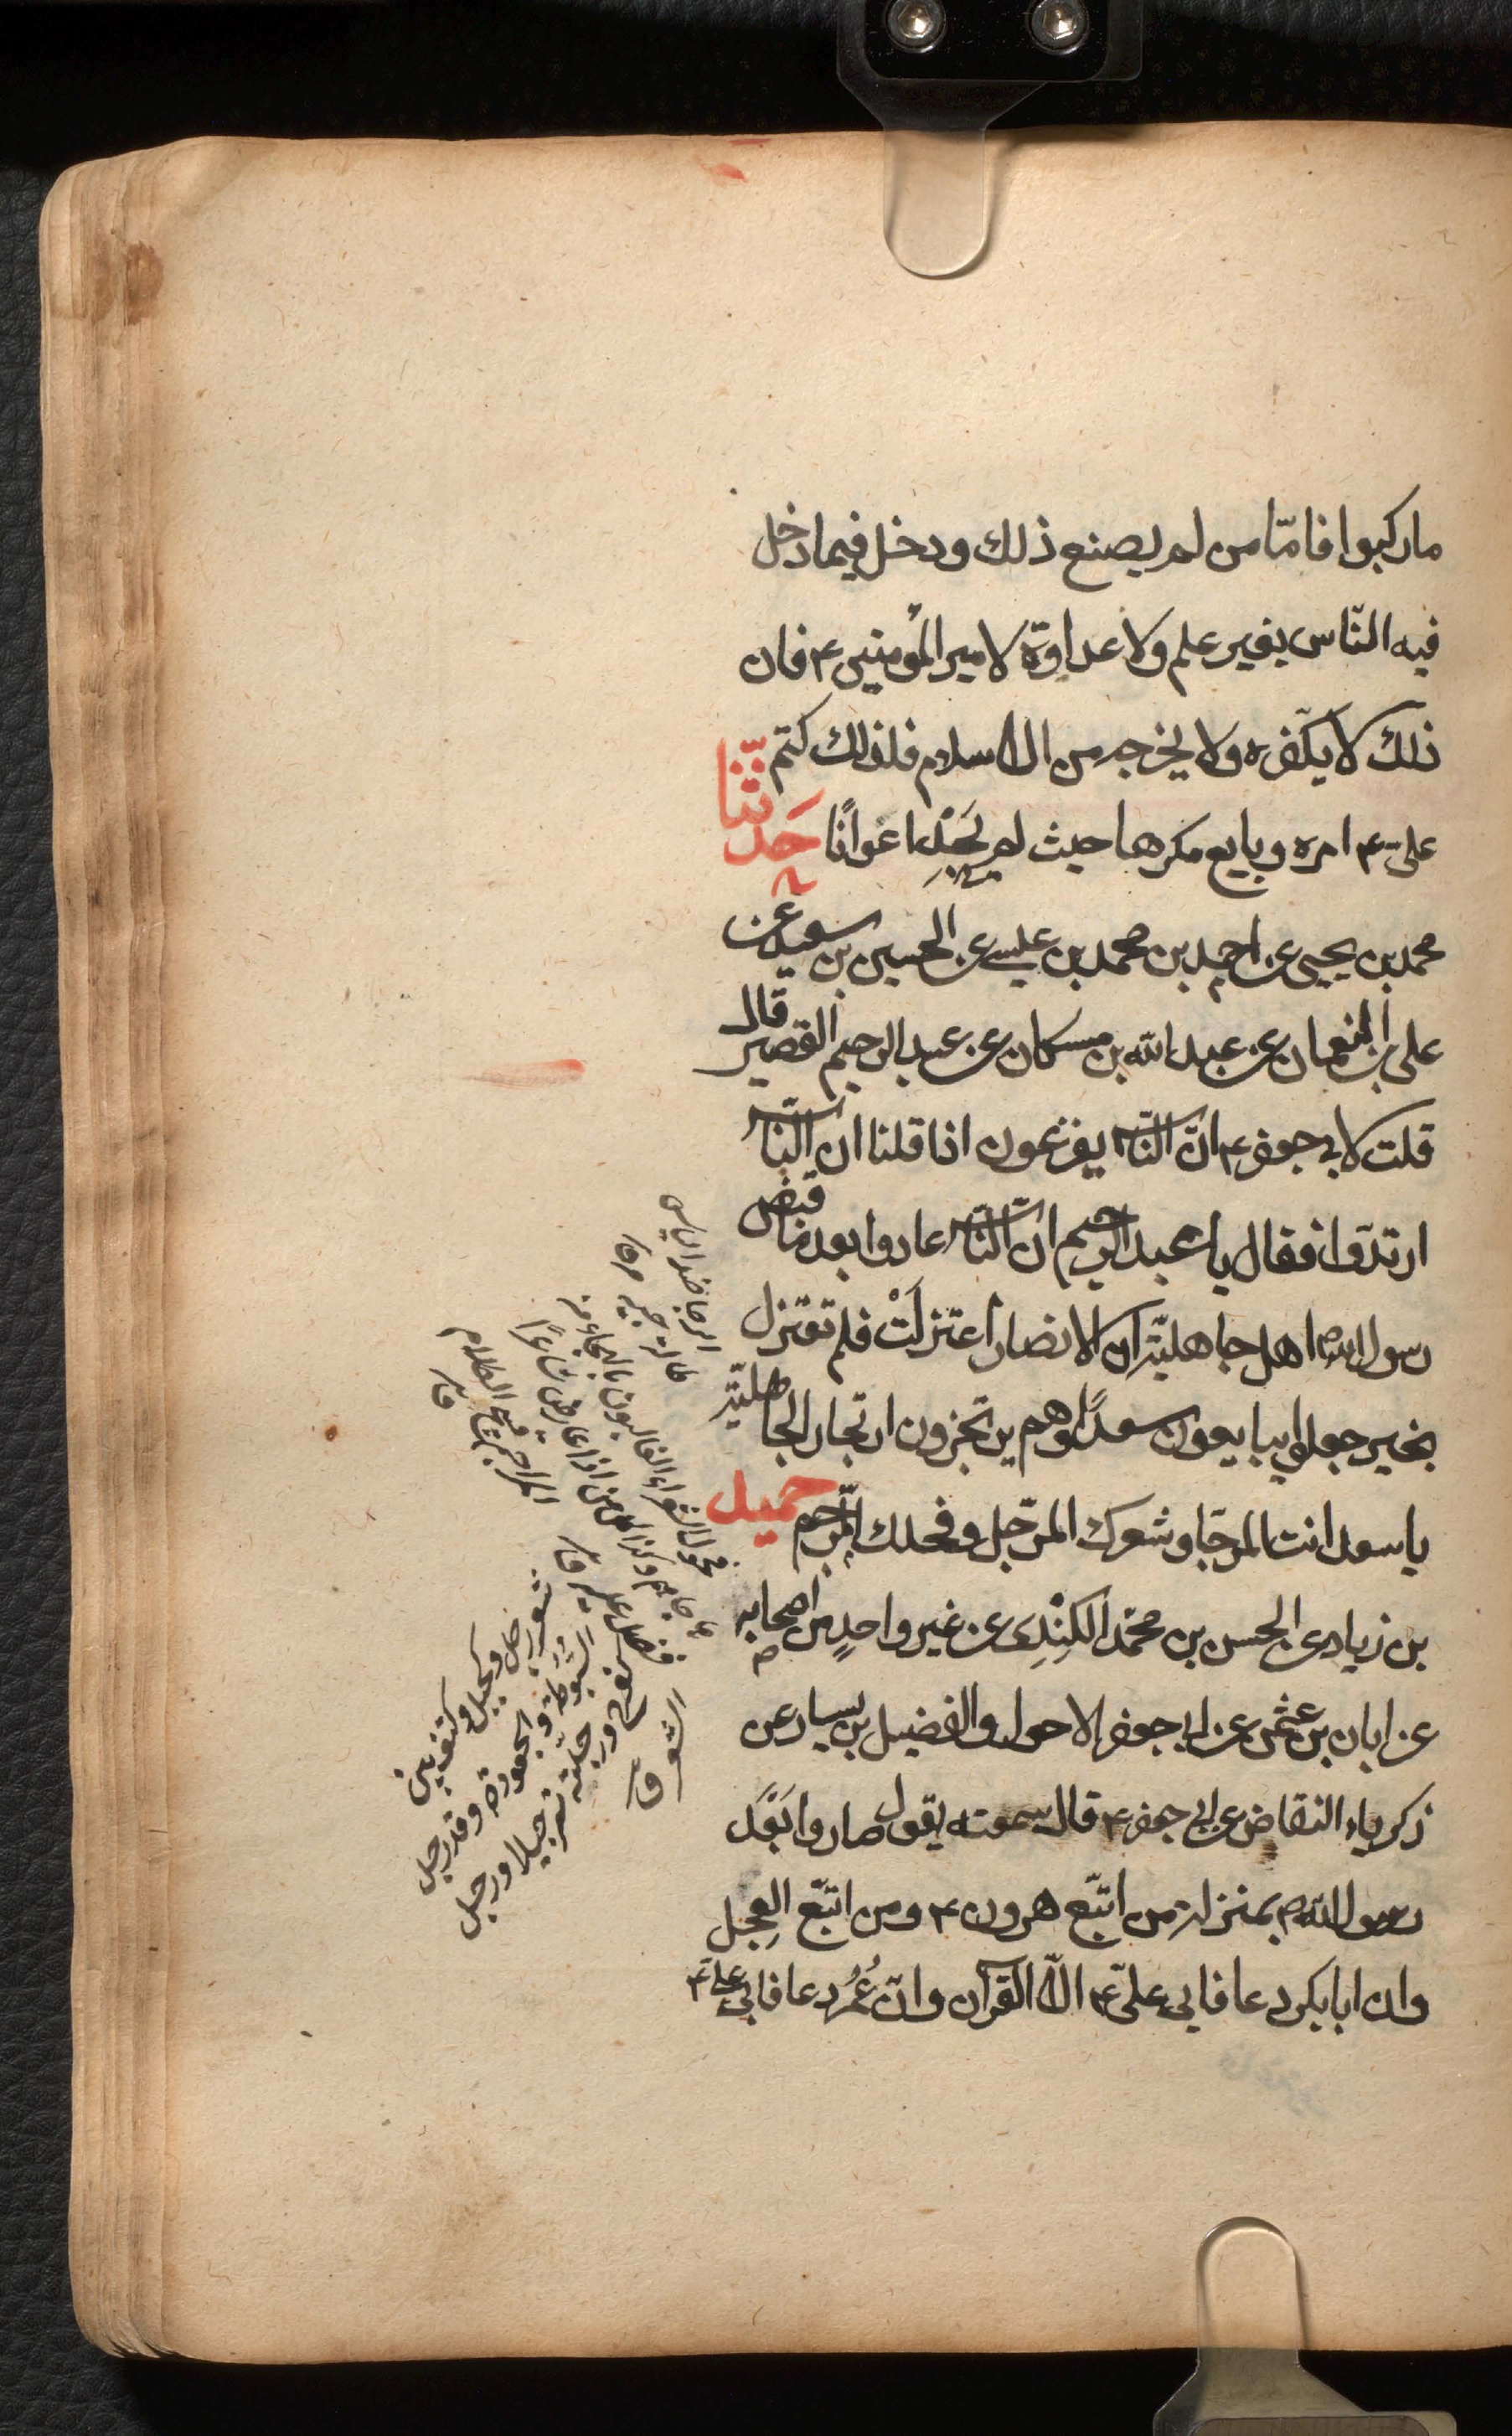 ما ركبوا فامّا من لم يصنع ذلك ودخل فيما دخل
فيه النّاس بغير علم ولا عداوة لامير المؤمنين ع فان
ذلك لا يكفّره ولا يخرجه من الاسلام فلذلك كتم
علىّ ع امره وبايع مكرها حيث لم يجد اعوانًا حَدثنا
محمد بن يحيى عن احمد بن محمد بن عيسى عن الحسين بن سعيد عن
على بن النعمان عن عبد الله بن مسكان عن عبد الرحيم القصير قال
قلت لابى جعفر ع انّ النّاس يفزعون اذا قلنا ان النّاس
ارتدّوا فقال يا عبد الرحيم انّ النّاس عادوا بعد ما قبض
رسول الله ص اهل جاهليّة ان الانصار اعتزلَتْ فلم تعتزل
بخير جعلوا يبايعون سعدًا وهم يرتجزون ارتجاز الجاهليّة
يا سعد انت المرجّا وشعرك المرجّل وفحلك المرجم حميد
بن زياد عن الحسن بن محمّد الكِنْدِى عن غير واحدٍ من اصحابه
عن ابان بن عثمن عن ابى جعفر الاحول والفضيل بن يسار عن
زكرياء النقاض عن ابى جعفر ع قال سمعته يقول صاروا بَعْدَ
رسول الله ص بمنزلة من اتبّع هرون ع ومن اتبّع العِجل
وان ابا بكر دعا فابى علىّ ع الّا القرآن وانّ عُمُر دعا فابى علىّ ع
شعر رجل وكجبل وكتف بين
السُبوطة والجعودة وقد رجل
كفرح ورجلته ترجيلا ورجل